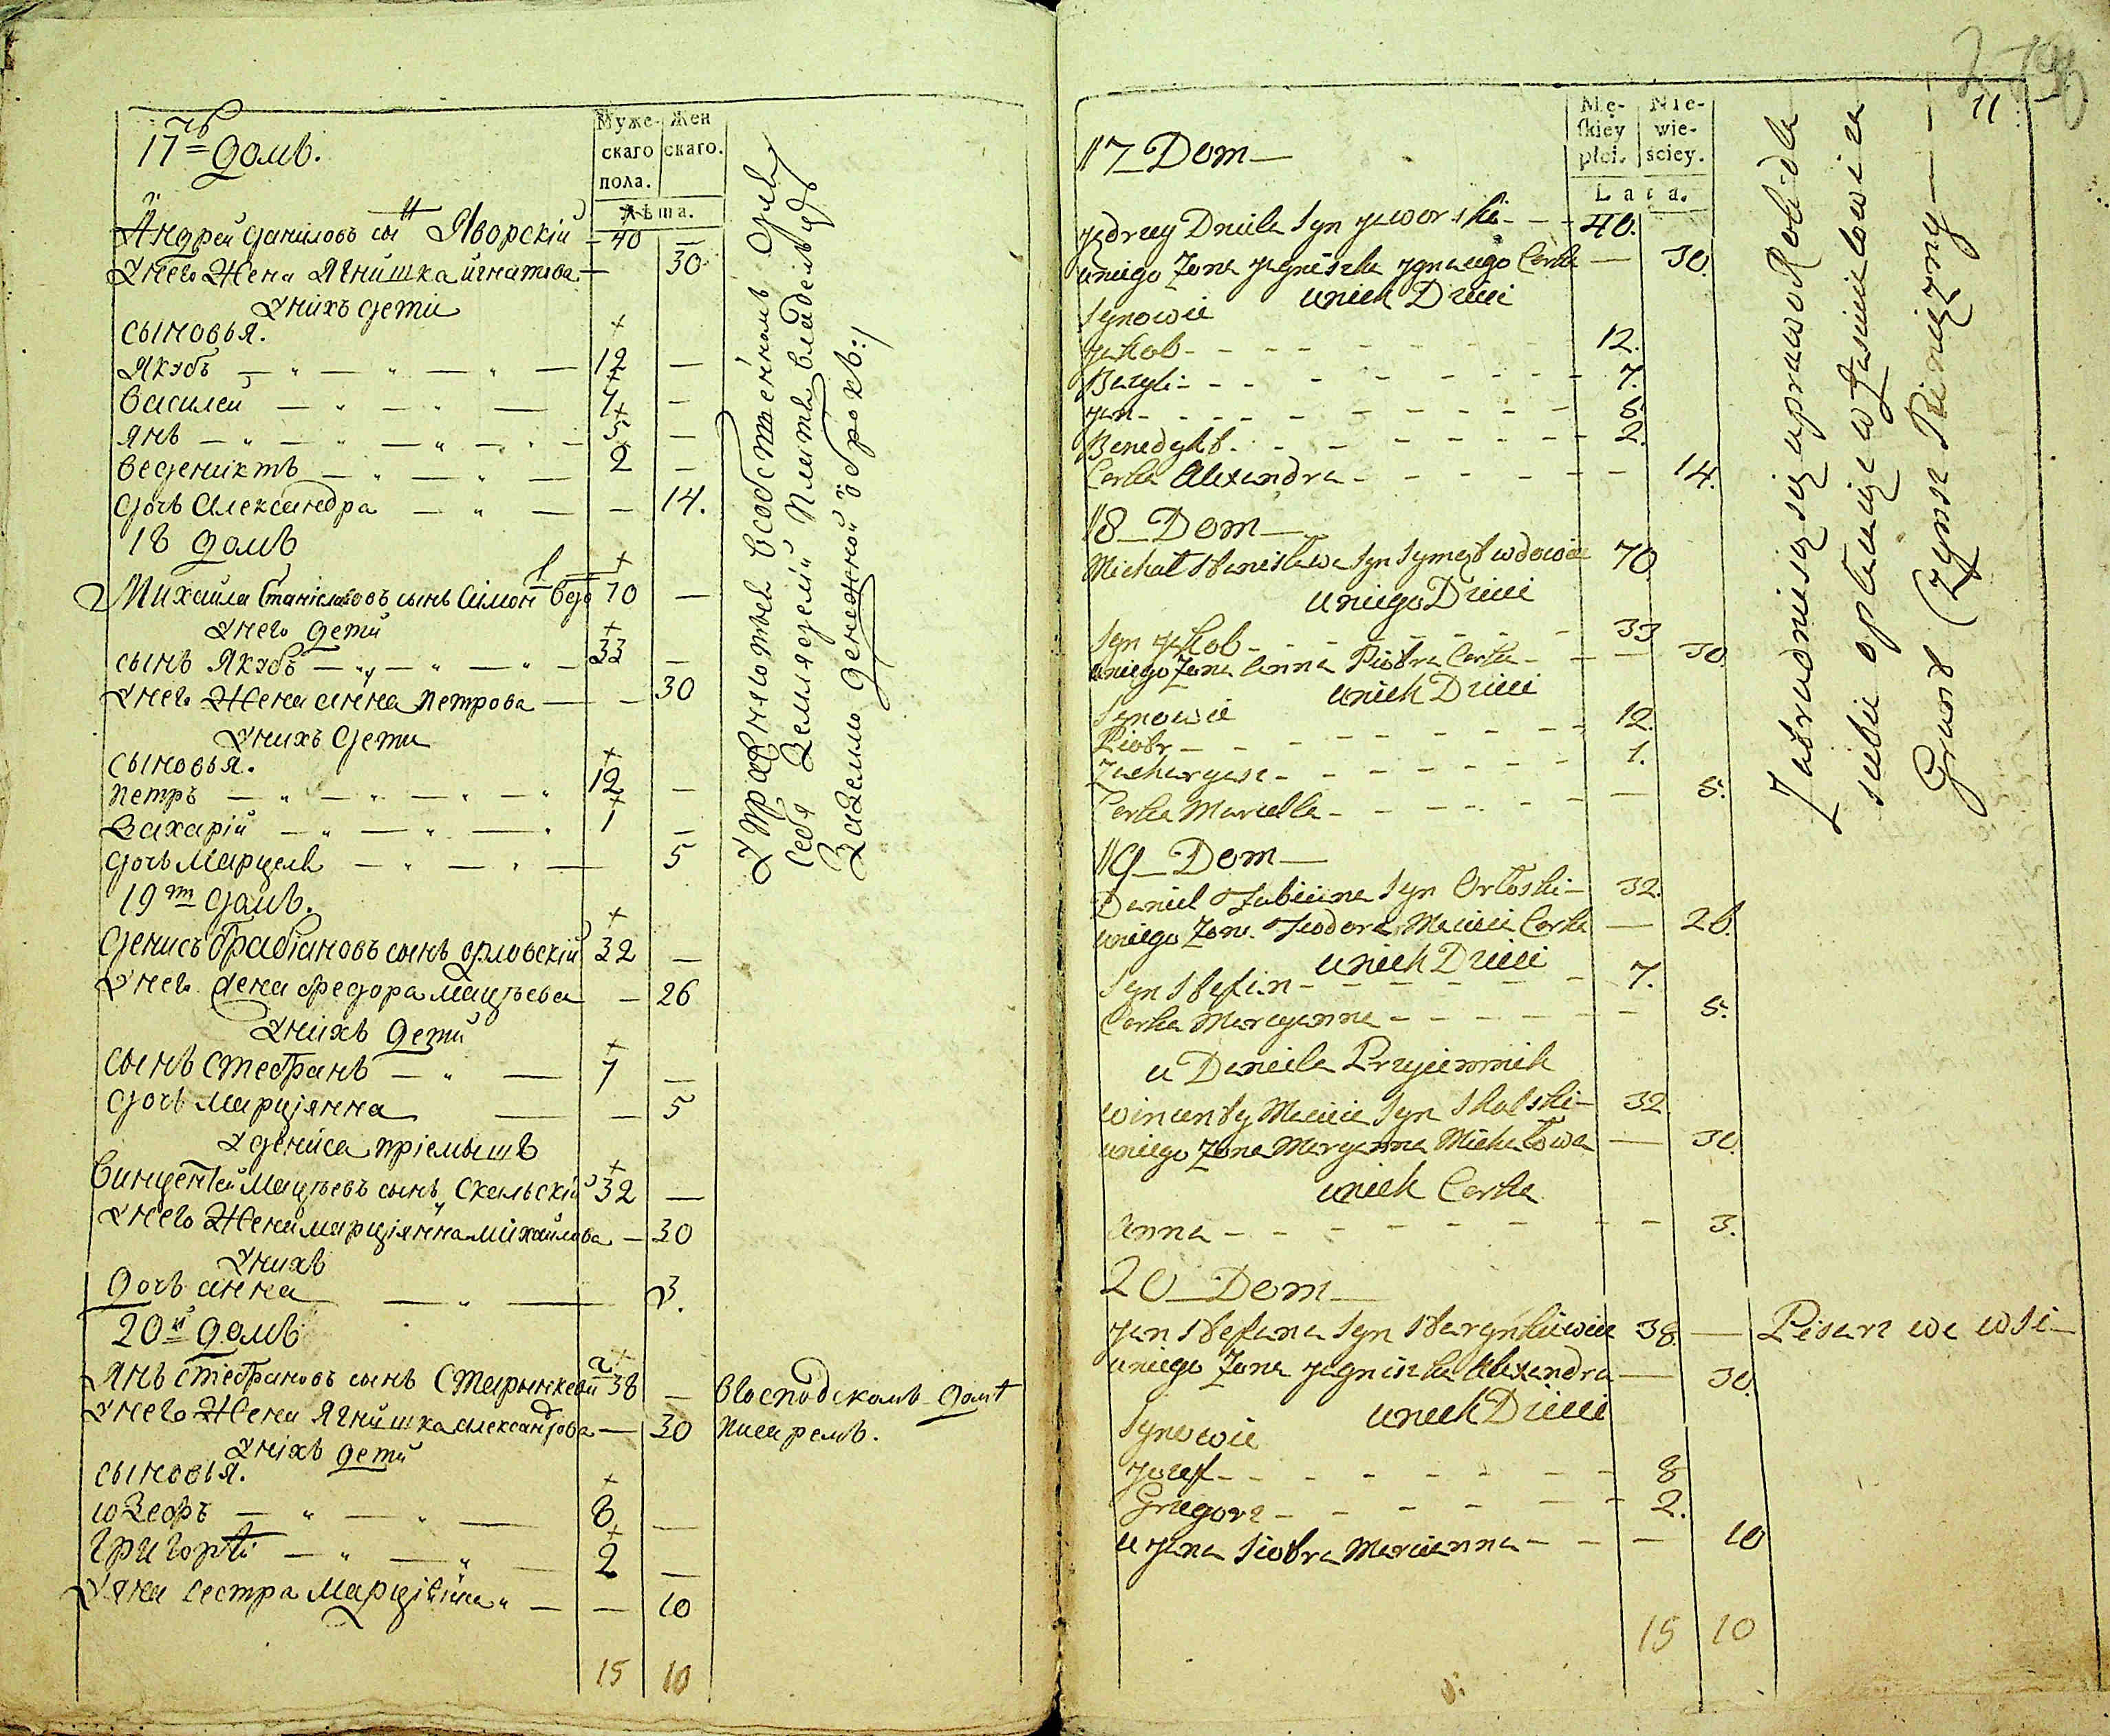 17й домъ.
Муже- Жен
скаго скаго.
пола.
Лѣта.
Андрей Даниловъ сы Н Яворскій - 40 —
У него Жена Ягнишка игнатова — 30
У нихъ дети
сыновья.
Якубъ — „ — „ — „ — 12 —
Василей — „ — „ — 7 —
Янъ — „ — „ — „ — „ — 5 —
Беденіктъ — „ — „ — 2 —
Дочь Александра — „ — — 14.
18 домъ
Михайла Станіславовъ сынъ Симон 70 —
У него дети
сынъ Якубъ — „ — „ — „ — 33 —
У него Жена анна Петрова — — 30
У нихъ дети
сыновья.
Петръ — „ — „ — „ — „ 12 —
Захарій — „ — „ — „ 1 —
дочь Марцела — „ — „ — 5
19 домъ.
Денисъ Фабіановъ сынъ орловскій 32 —
У него Жена Федора Мацѣева — 26
У нихъ дети
Сынъ Стефанъ — „ — 7 —
Дочь Марціянна — — 5
У дениса пріемышъ
Винцентей Мацѣевъ сынъ Скальскій 32 —
У него Жена марціянна михайлова — 30
У нихъ
Дочь анна — „ — 3.
20й домъ
Янъ Стефановъ сынъ Старынкевй 38 — в Господскомъ домѣ
У него Жена Ягнишка александрова — 30 писаремъ.
У ніхъ дети
сыновья.
юзефъ — „ — „ — 8 —
Григорѣі — „ — „ — 2 —
У яна сестра Марціянна „ — — 10
15 10
Упражняютьсе в собственномъ
себя земляделіи Платя владельцу
За землю Денежной оброкъ:/
11
17 Dom —
Mę- Nie-
skiey wie-
płci. sciey.
Lata.
Jędrzey Daniela Syn Jaworski - - - 40.
u niego Zona Jagniszka Jgnacego Corka — 30.
u nich Dzieci
Synowie
Jakob - - - - 12.
Bazyli - - - - 7.
Jan - - - - 5.
Benedykt - - - - 2.
Corka Alexandra - - - - 14.
18 Dom —
Michał Stanisława Syn Symon wdowiec 70
u niego Dzieci
Syn Jakob - - - - 33
u niego Zona Anna Piotra Corka - - — 30
u nich Dzieci
Synowie
Piotr - - - - 12.
Zacharyasz - - - - 1.
Corka Marcella - - - - 5.
19 Dom —
Daniel Fabiiana Syn Orłoski - 32.
u niego Zona Teodora Macieia Corka — 26.
u nich Dzieci
Syn Stefan - - - - 7.
Corka Maryanna - - - - 5.
u Daniela Przyiemnik
Wincenty Macieia Syn Skalski - 32
u niego Zona Maryanna Michałowa — 30.
u nich Corka
Anna - - - - 3.
20 Dom —
Jan Stefana Syn Starynkiiewicz 38. — Pisarz we wsi —
u niego Zona Jagniszka Alexandra — 30.
u nich Dzieci
Synowie
Jozef - - - - 8
Grzegorz - - - - 2.
u Jana Siostra Marcianna - - — 10
15 10
Zatrudniają się uprawo Roli dla
siebie opłacaiąc właścicielowi za
Grunt Czynsz Pieniężny —